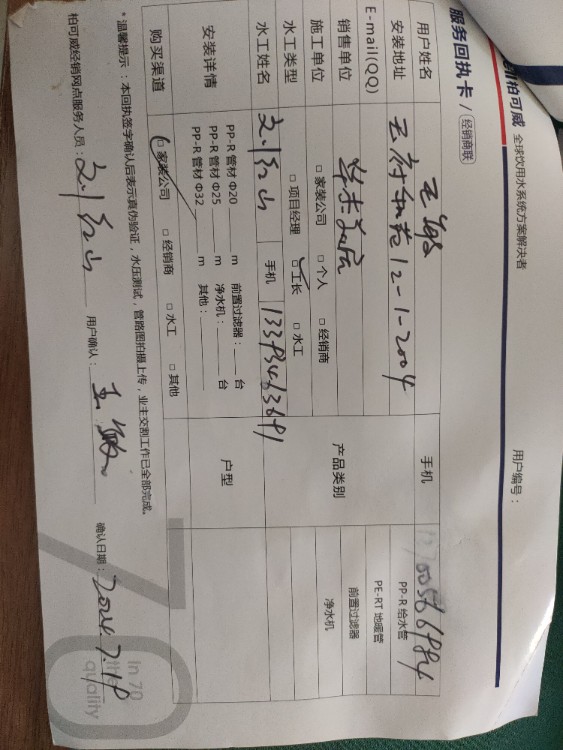 柏可威 全球饮用水系统方案解决者
服务回执卡 / 经销商联
用户编号：
用户姓名 王敏 手机
安装地址 12-1-2004
E-mail(QQ)
产品类别
PP-R 给水管
PE-RT 地暖管
前置过滤器
净水机
销售单位 华杰
施工单位 □ 家装公司 □ 个人 □ 经销商
水工类型 □ 项目经理 □ 工长 □ 水工
水工姓名 刘红山 手机
安装详情 PP-R 管材 Φ20 m 前置过滤器： 台
PP-R 管材 Φ25 m 净水机： 台
PP-R 管材 Φ32 m 其他：
户型
购买渠道 □ 家装公司 □ 经销商 □ 水工 □ 其他
*温馨提示：本回执签字确认后表示真伪验证，水压测试，管路图拍摄上传，业主交割工作已全部完成。
柏可威经销网点服务人员：刘红山 用户确认：王敏 确认日期：2024.7.19
70
In 70
the
quality